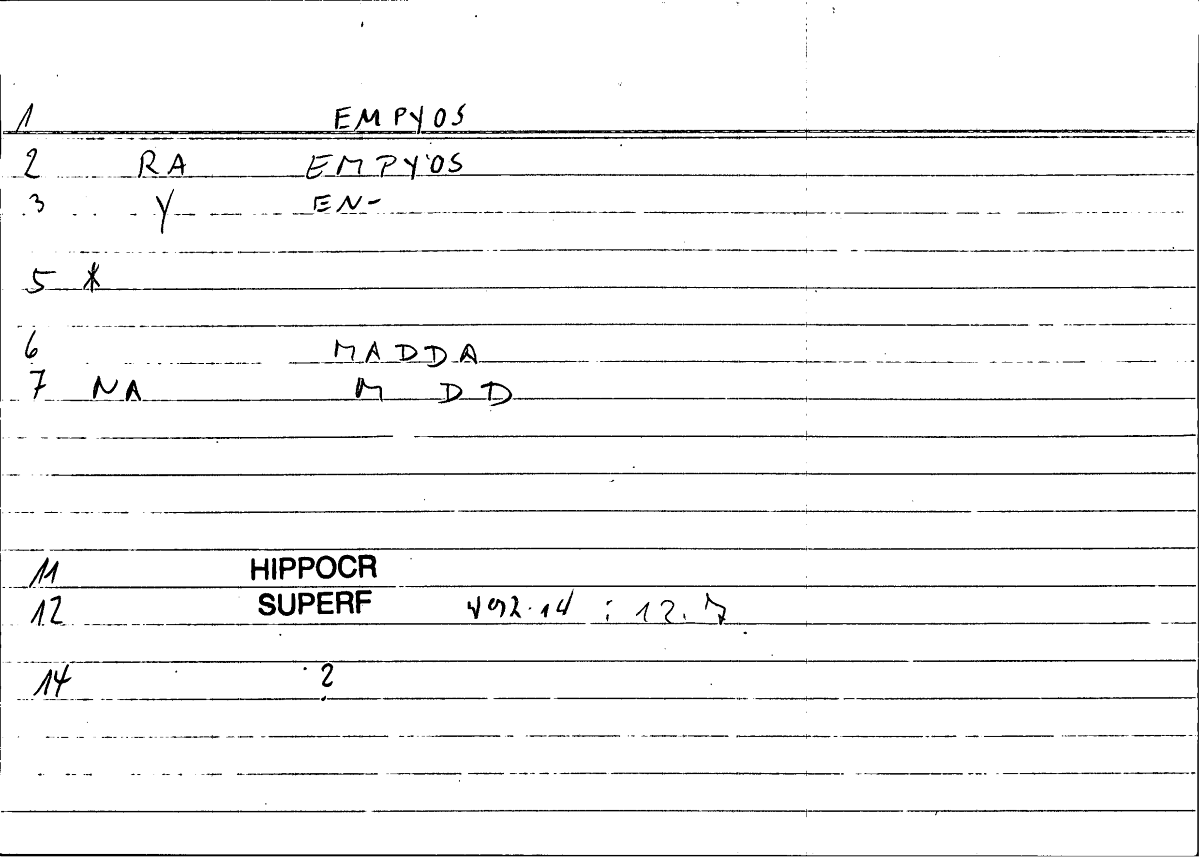 1 EMPYOS
2 RA EMPYOS
3 Y EN-
5 *
6 MADDA
7 NA M DD
11 HIPPOCR
12 SUPERF 492.14 : 12.7
14 ?